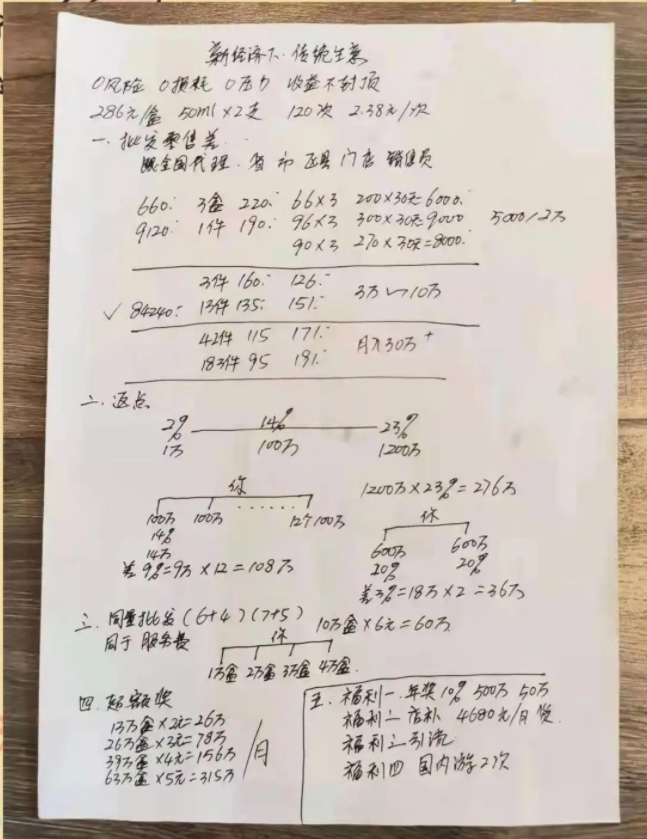 新经济下.传统生意
0风险 0损耗 0压力 收益不封顶
286元/盒 50ml×2支 120次 2.38元/次
一.批发零售差.
跟全国代理.省 市 区县 门店 销售员
660.- 3盒 220.- 66×3 200×30天=6000.-
9120.- 1件 190.- 96×3 300×30天=9000 5000/2万
90×3 270×30天=8000.-
3件 160.- 126.-
3万~10万
✓ 84240.- 13件 135.- 151.-
42件 115 171.-
月入30万+
183件 95 191.-
二.返点
2% 14% 23%
1万 100万 1200万
你 1200万×23%=276万
100万 100万 ...... 12个100万
14%
14万
差9%=9万×12=108万
你
600万 600万
20% 20%
差3%=18万×2=36万
三.同量批发(6+4)(7+5) 10万盒×6元=60万
同于服务费 你
1万盒 2万盒 3万盒 4万盒.
四.超额奖
13万盒×2元=26万
26万盒×3元=78万
39万盒×4元=156万
63万盒×5元=315万
/月
五.福利一.年奖10% 500万 50万
福利二 店补 4680元/月货.
福利三 引流
福利四 国内游2次